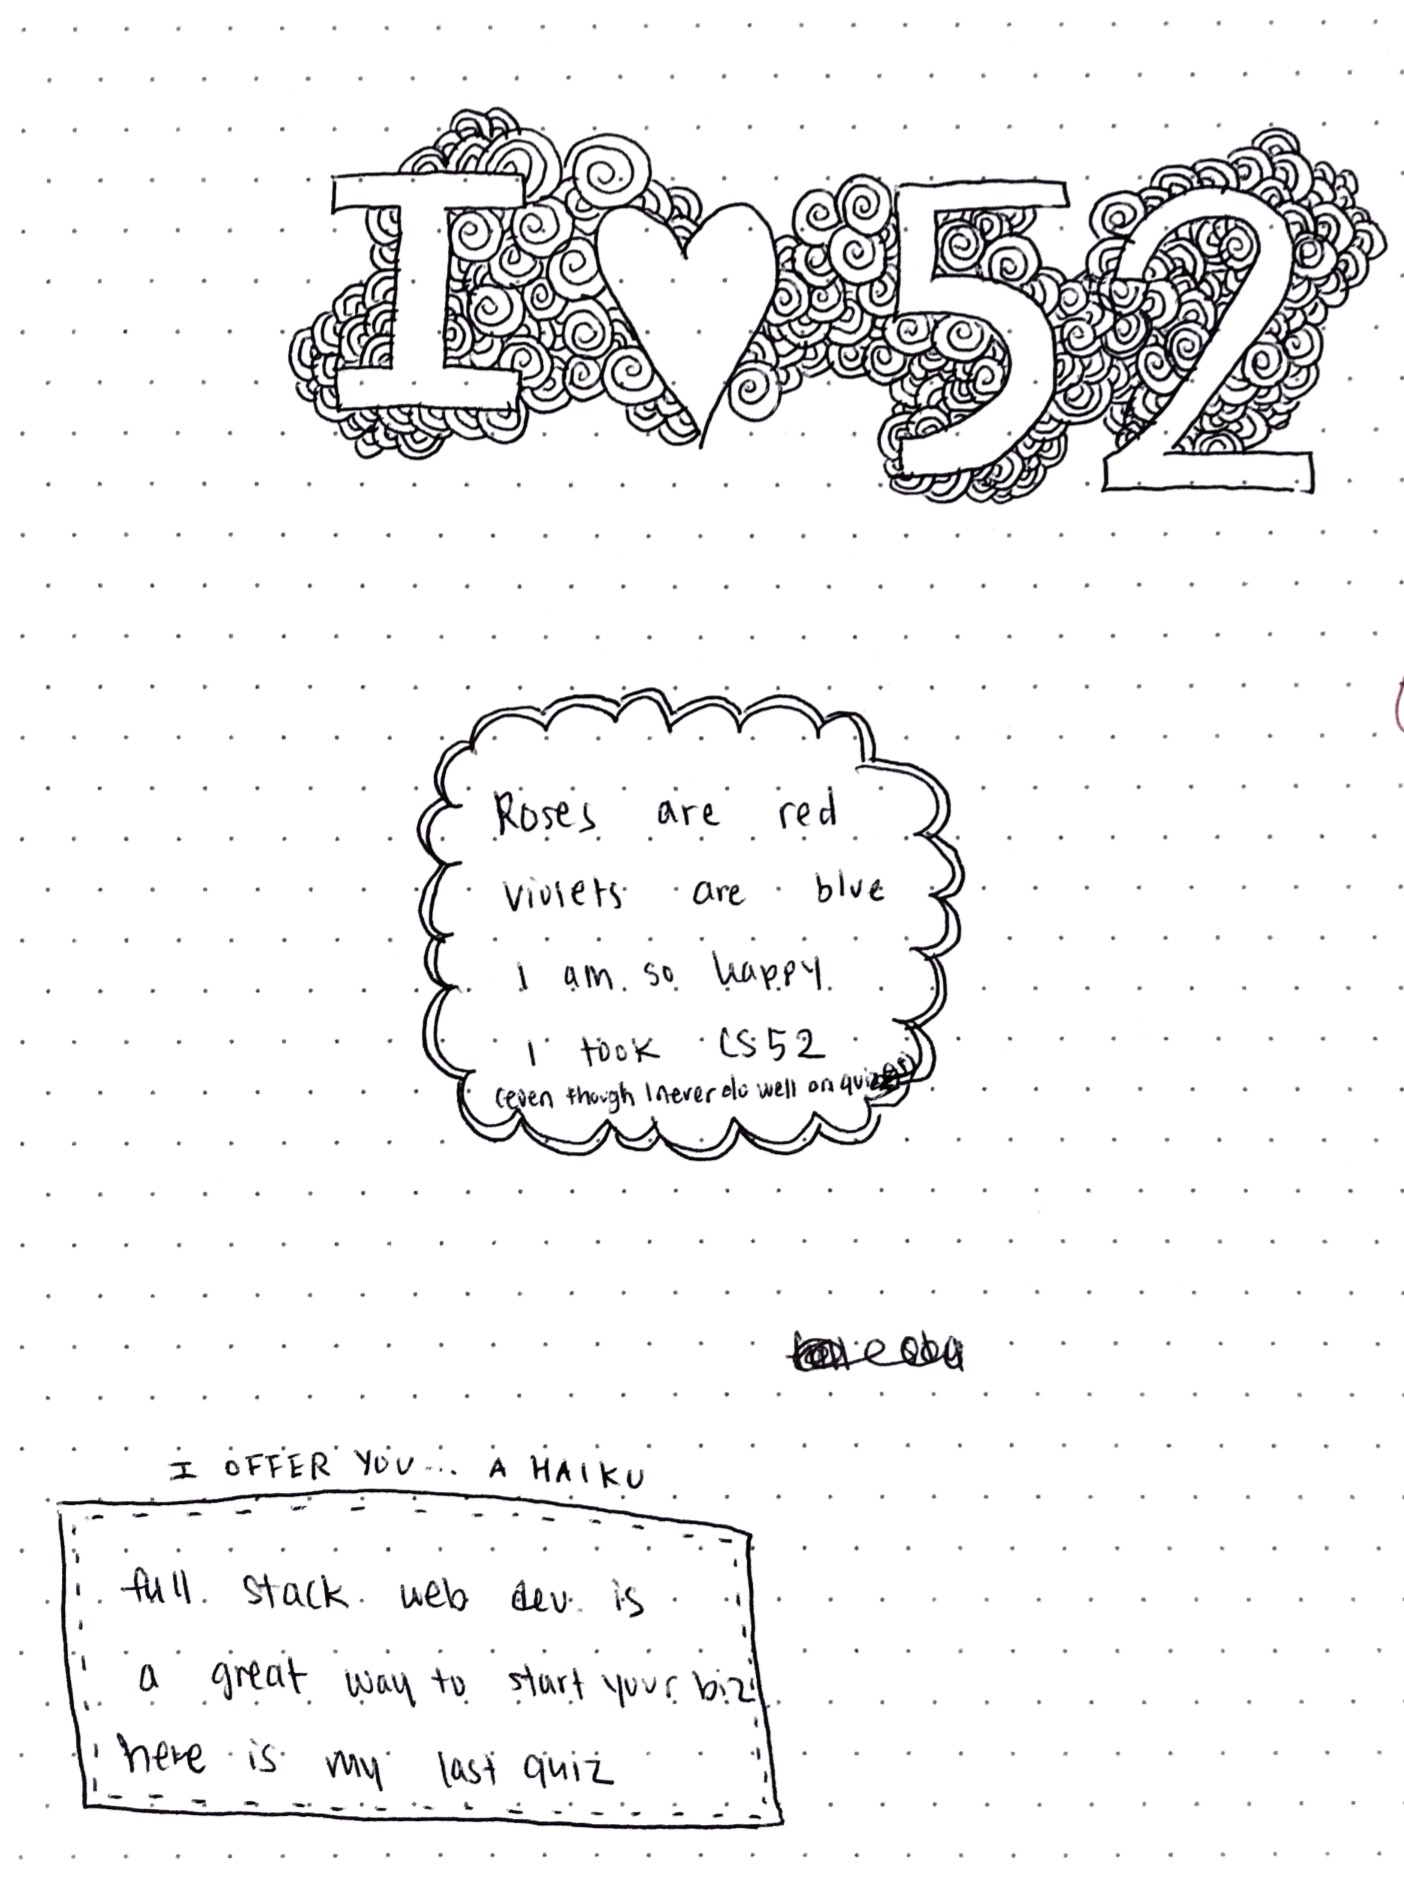 I ♥ 52
Roses are red
violets are blue
I am so happy
I took CS52
(even though I never do well on quizzes)
I OFFER YOU... A HAIKU
full stack web dev is
a great way to start your biz
here is my last quiz